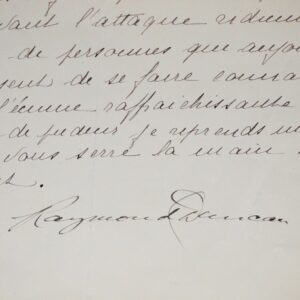 vant l'attaque
de personnes que
sent de se faire
l'écume raffraichissante
de pudeur je reprends
vous serre la main
t.
Raymond Duncan